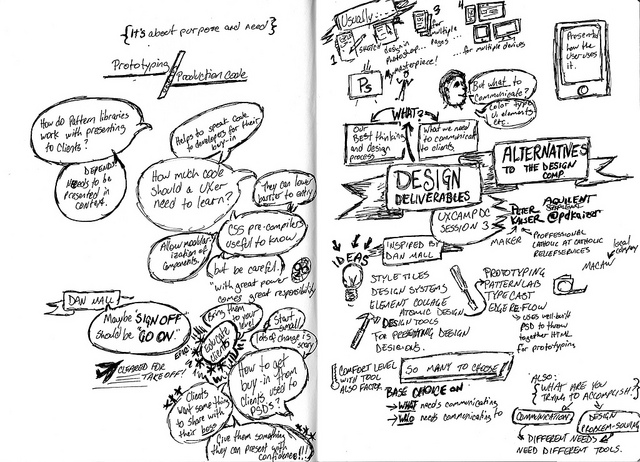 {It's about purpose and need}
Prototyping
Production code
How do Pattern libraries
work with presenting
to Clients?
DEPENDS
Needs to be
presented in
context.
Helps to speak code
to developers for their
buy-in
How much code
should a UXer
need to learn?
They can lower
barrier to entry
CSS pre-compilers
useful to know
Allow modular-
ization of
components.
but be careful.
"with great power
comes great responsibility
DAN MALL
Maybe "SIGN OFF"
should be "GO ON."
CLEARED FOR
TAKEOFF!
Bring them
to your
level
Educate
clients
Start
small!
lots of change is
scary
How to get
buy-in from
Clients used to
PSDs?
Clients
want something
to share with
their boss
Give them something
they can present with
confidence!!!
Usually...
1
SKETCH
design in
Photoshop...
My masterpiece!
3
for
multiple
pages...
4
...for multiple devices
Ps
But what to
Communicate?
Color, type,
UI elements
etc.
Presents
how the
user uses
it.
WHAT?
OUR
BEST thinking
and design
process
What we need
to communicate
to clients.
DESIGN
DELIVERABLES
ALTERNATIVES
TO THE DESIGN
COMP.
UXCAMP DC
SESSION 3
PETER
KAISER
AQUILENT
@pdkaizer
MAKER
PROFESSIONAL
CATHOLIC AT CATHOLIC
RELIEF SERVICES
local
company
INSPIRED BY
DAN MALL
IDEAS
STYLE TILES
DESIGN SYSTEMS
ELEMENT COLLAGE
ATOMIC DESIGN
DESIGN TOOLS
For PRESENTING DESIGN
DECISIONS.
PROTOTYPING
PATTERN LAB
TYPECAST
EDGE REFLOW
→ uses well-built
PSD to throw
together HTML
for prototyping
COMFORT LEVEL
WITH TOOL
ALSO FACTOR.
SO MANY TO CHOOSE!
BASE CHOICE ON
→ WHAT needs communicating
→ WHO needs communicating to
ALSO:
{WHAT ARE YOU
TRYING TO ACCOMPLISH?}
COMMUNICATION
DESIGN
PROBLEM-SOLVING
DIFFERENT NEEDS
NEED DIFFERENT TOOLS.